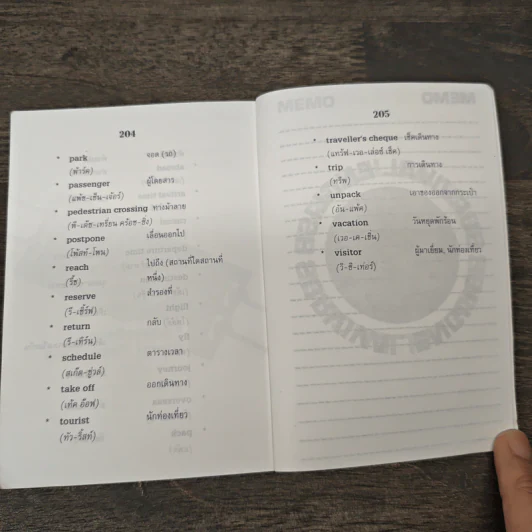 204
• park จอด (รถ)
(พ้าร์ค)
• passenger ผู้โดยสาร
(แพ้ซ-เซ็น-เจ้อร์)
• pedestrian crossing ทางม้าลาย
(พี-เด๊ซ-เทรี่ยน คร้อซ-ซิง)
• postpone เลื่อนออกไป
(โพ้สท์-โพน)
• reach ไปถึง (สถานที่ใดสถานที่
(รี้ช) หนึ่ง)
• reserve สำรองที่
(รี-เซิ้ร์ฟ)
• return กลับ
(รี-เทิร์น)
• schedule ตารางเวลา
• take off ออกเดินทาง
(เท้ค อ๊อฟ)
• tourist นักท่องเที่ยว
(ทัว-ริ้สท์)
MEMO
205
• traveller's cheque เช็คเดินทาง
(แทร้ฟ-เวอ-เล่อซ์ เช็ค)
• trip การเดินทาง
(ทริ้พ)
• unpack เอาของออกจากกระเป๋า
(อัน-แพ้ค)
• vacation วันหยุดพักร้อน
(เวอ-เค-เชิ่น)
• visitor ผู้มาเยี่ยม, นักท่องเที่ยว
(วี้-ซิ-เท่อร์)